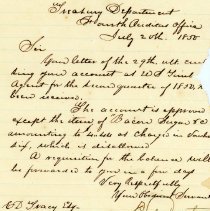 Treasury Department
Fourth Auditors Office
July 20th 1850
Sir
Your letter of the 29th ult.
your account as
Agent for the second quarter of 1850,
been received.
The account is approved
except the item of Bacon Sugar &c
amounting to as charged in
six, which is disallowed
A requisition for the balance will
be forwarded to you in a few days
Very Respectfully
Your
Tracy Esq.